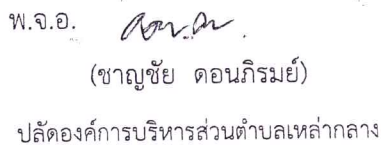 พ.จ.อ.
(ชาญชัย ดอนภิรมย์)
ปลัดองค์การบริหารส่วนตำบลเหล่ากลาง